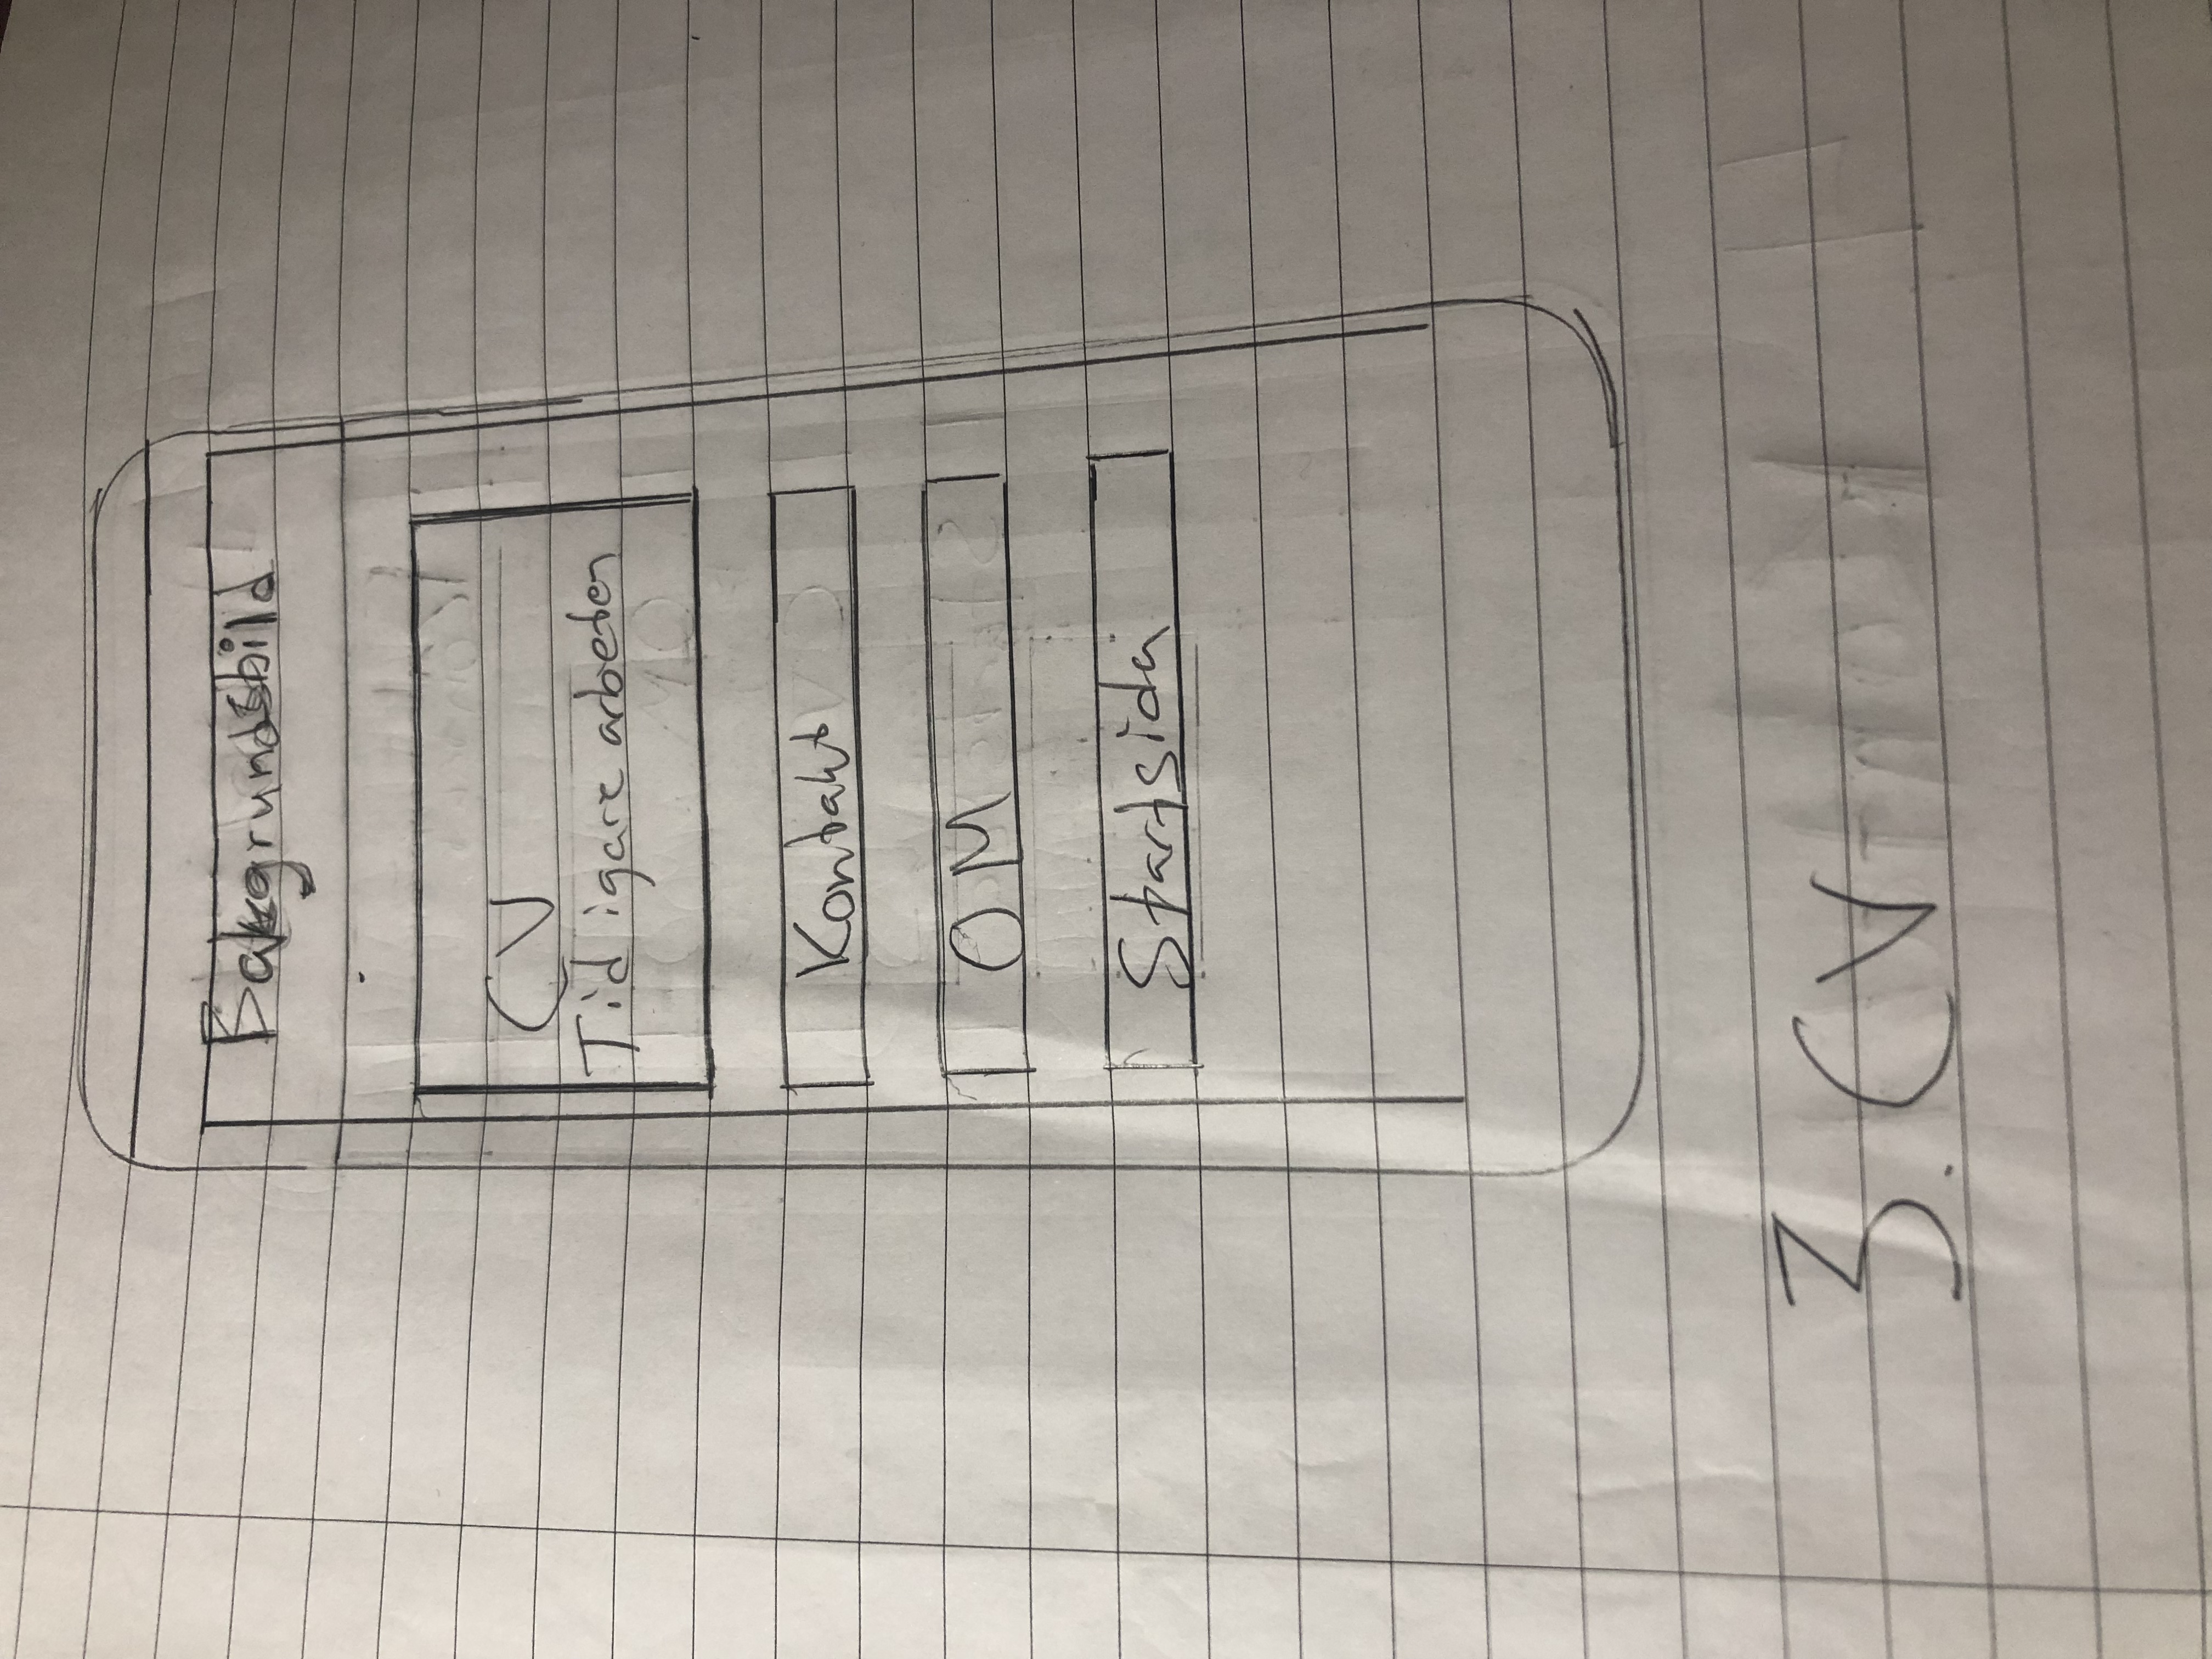 Bakgrundsbild
CV
Tidigare arbeten
Kontakt
OM
Startsida
3. CV